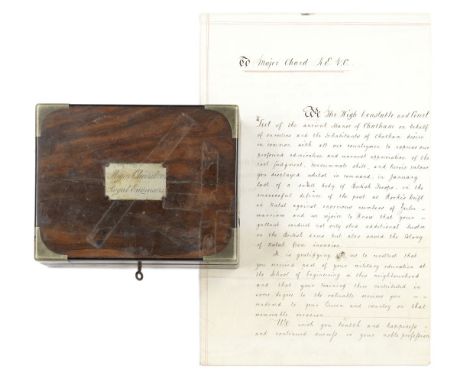 Major Chard
Royal Engineers
To Major Chard R.E. V.C.
We The High Constable and Court
Leet of the ancient Manor of Chatham on behalf
of ourselves and the Inhabitants of Chatham desire
in common with all our countrymen to express our
profound admiration and warmest appreciation of the
cool judgment, consummate skill, and heroic valour
you displayed whilst in command, in January
last of a small body of British Troops, in the
successful defence of the post at Rorke's Drift
in Natal against enormous numbers of Zulu
warriors and we rejoice to know that your
gallant conduct not only shed additional lustre
on the British Arms but also saved the Colony
of Natal from invasion.
It is gratifying to us to recollect that
you received most of your military education at
the School of Engineering in this neighbourhood
and that your training there contributed in
some degree to the valuable services you
rendered to your Queen and country on that
memorable occasion.
We wish you health and happiness
and continued success in your noble profession